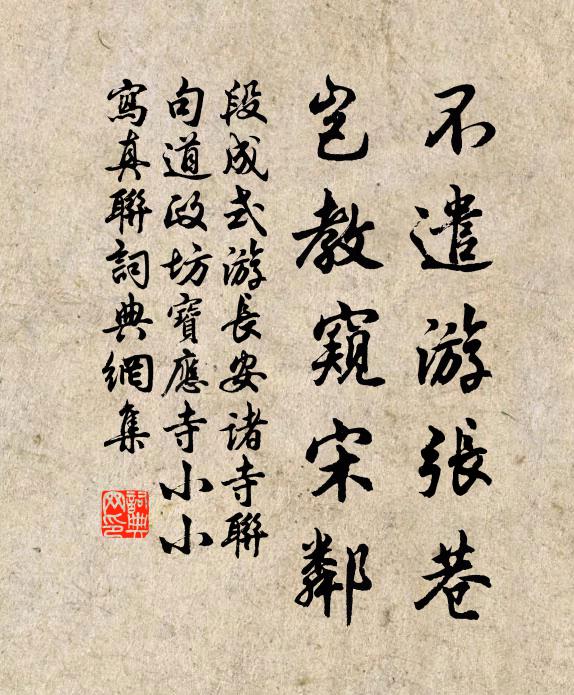 不遣游張巷
豈教窺宋鄰
段成式游長安诸寺聯
句道政坊寶應寺小小
寫真聯詞典網集
詞典
网印